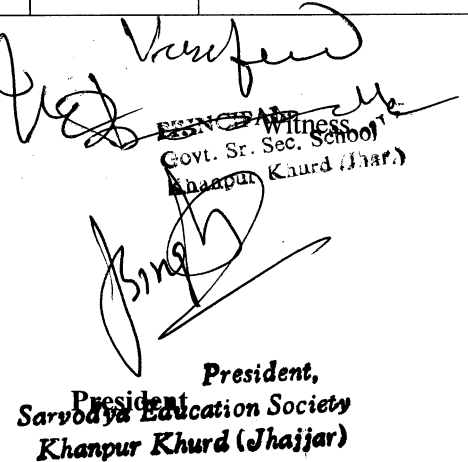 Verified
PRINCIPAL
Witness
Govt. Sr. Sec. School
Khanpur Khurd (Jhar.)
President,
President
Sarvodya Education Society
Khanpur Khurd (Jhajjar)